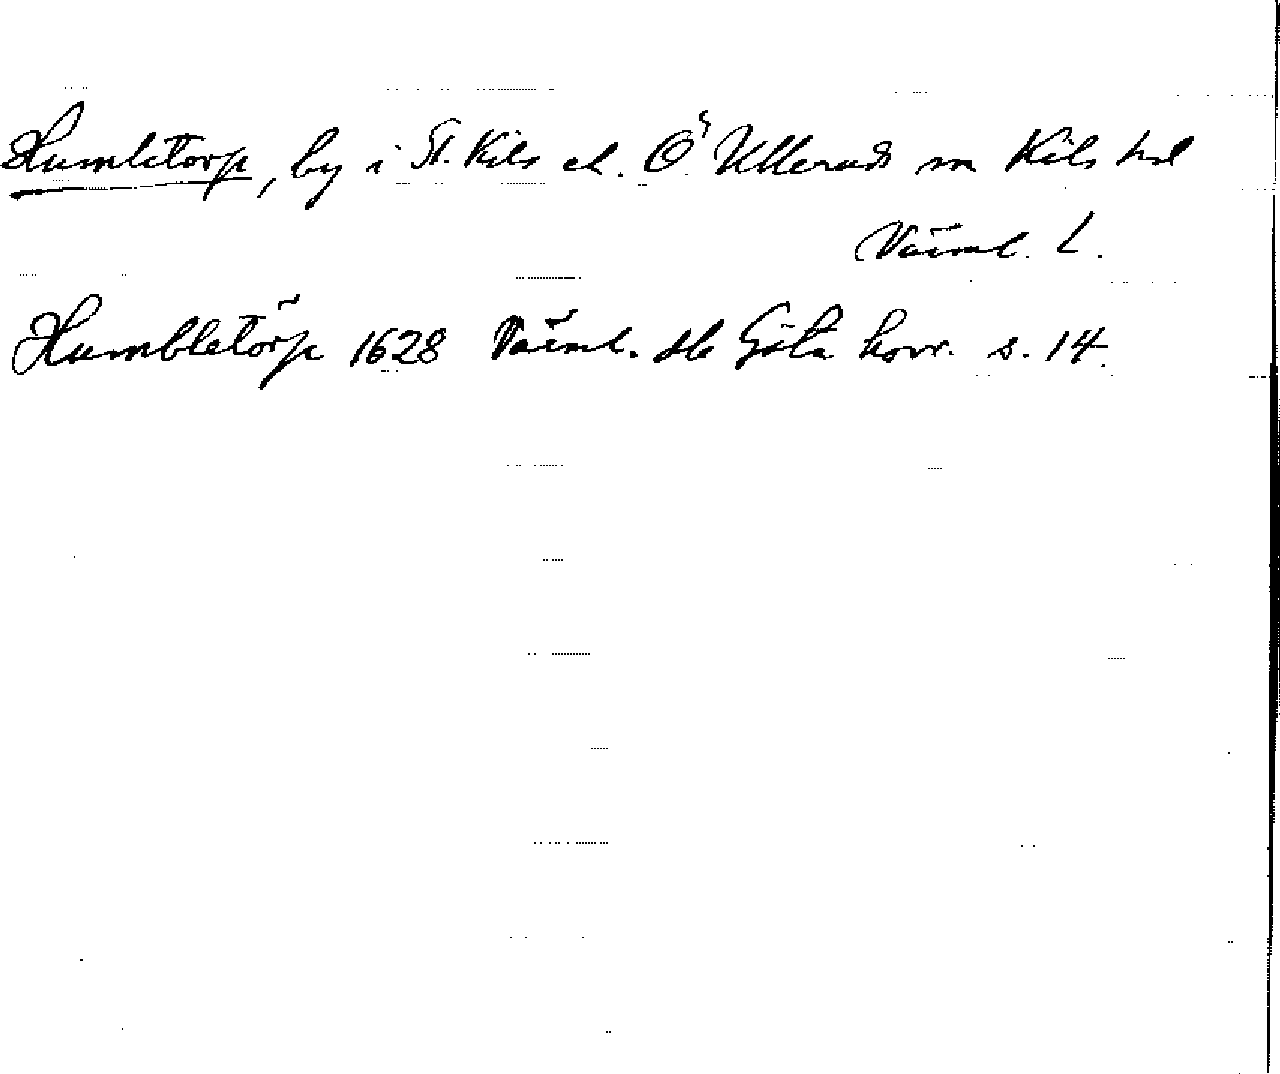 Humletorp, by i St. Kils el. Ö Ulleruds sn Kils hd
Värml. L.
Humbletörp 1628 Värml. db Göta hovr. s. 14.